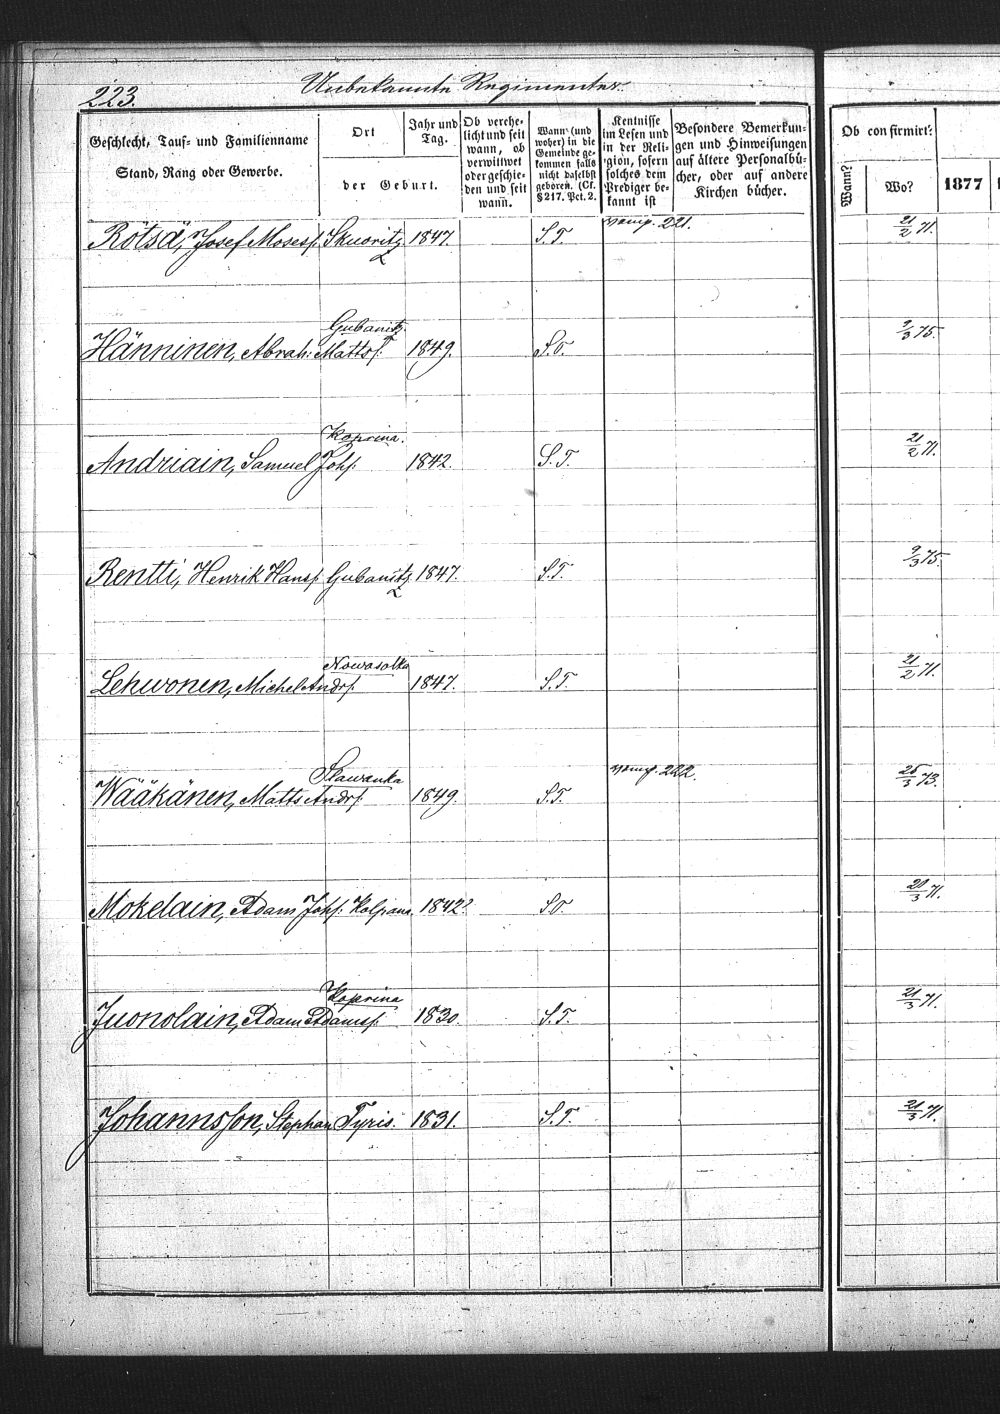 223.
Unbekannte Regimenter.
Geschlecht, Tauf= und Familienname
Stand, Rang oder Gewerbe.
Ort
Jahr und
Tag.
der Geburt.
Ob verehe-
licht und seit
wann, ob
verwittwet
oder geschie-
den und seit
wann.
Wann (und
woher) in die
Gemeinde ge-
kommen falls
nicht daselbst
geboren. (Cf.
§ 217. Pct. 2.
Kentnisse
im Lesen und
in der Reli-
gion, sofern
solches dem
Prediger be-
kannt ist
Besondere Bemerkun-
gen und Hinweisungen
auf ältere Personalbü-
cher, oder auf andere
Kirchen bücher.
Ob confirmirt:
Wann?
Wo?
1877
Rötsä, Josef Mosess. Skuoritz 1847. S.T. 221. 21/2 71.
Gubanitz
Hänninen, Abrah: Mattss. 1849. S.T. 9/3 75.
Koprina.
Andriain, Samuel Johs. 1842. S.T. 21/2 71.
Rentti, Henrik Hanss. Gubanitz 1847. S.T. 9/3 75.
Nowasolka
Lehwonen, Michel Andrs. 1847. S.T. 21/2 71.
Skawanka
Wääkänen, Matts Andrs. 1849. S.T. 222. 25/3 73.
Mokelain, Adam Johs. Kolpana 1842? S.T. 21/3 71.
Koprina
Juonolain, Adam Adamss. 1830. S.T. 21/3 71.
Johannsson, Stephan Tyris. 1831. S.T. 21/3 71.